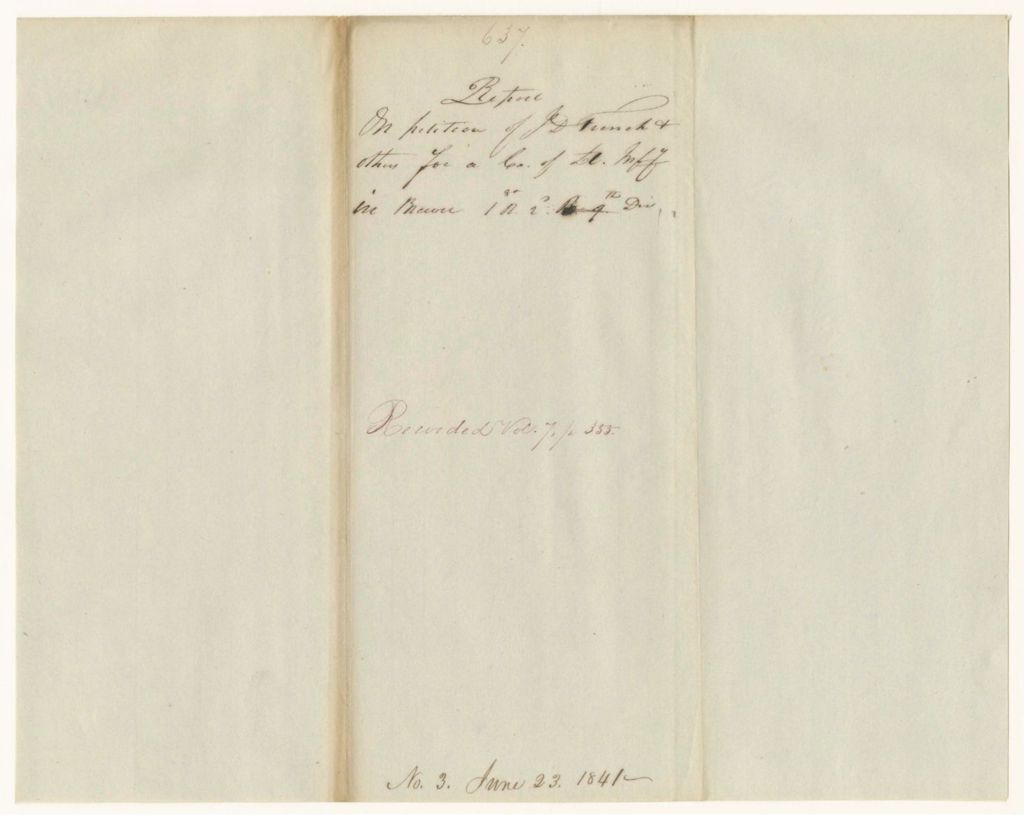 637.
Report
On petition of J D French &
others for a Co. of Lt. Inff
in Brewer 1st R 2d B 9th Div.
Recorded Vol. 7. p. 355.
No. 3. June 23. 1841